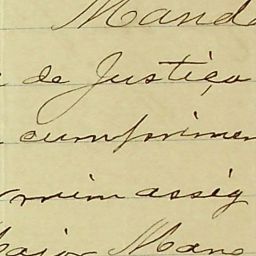 Manda
de Justiça
cumprimen
mim assig
ajor Mano